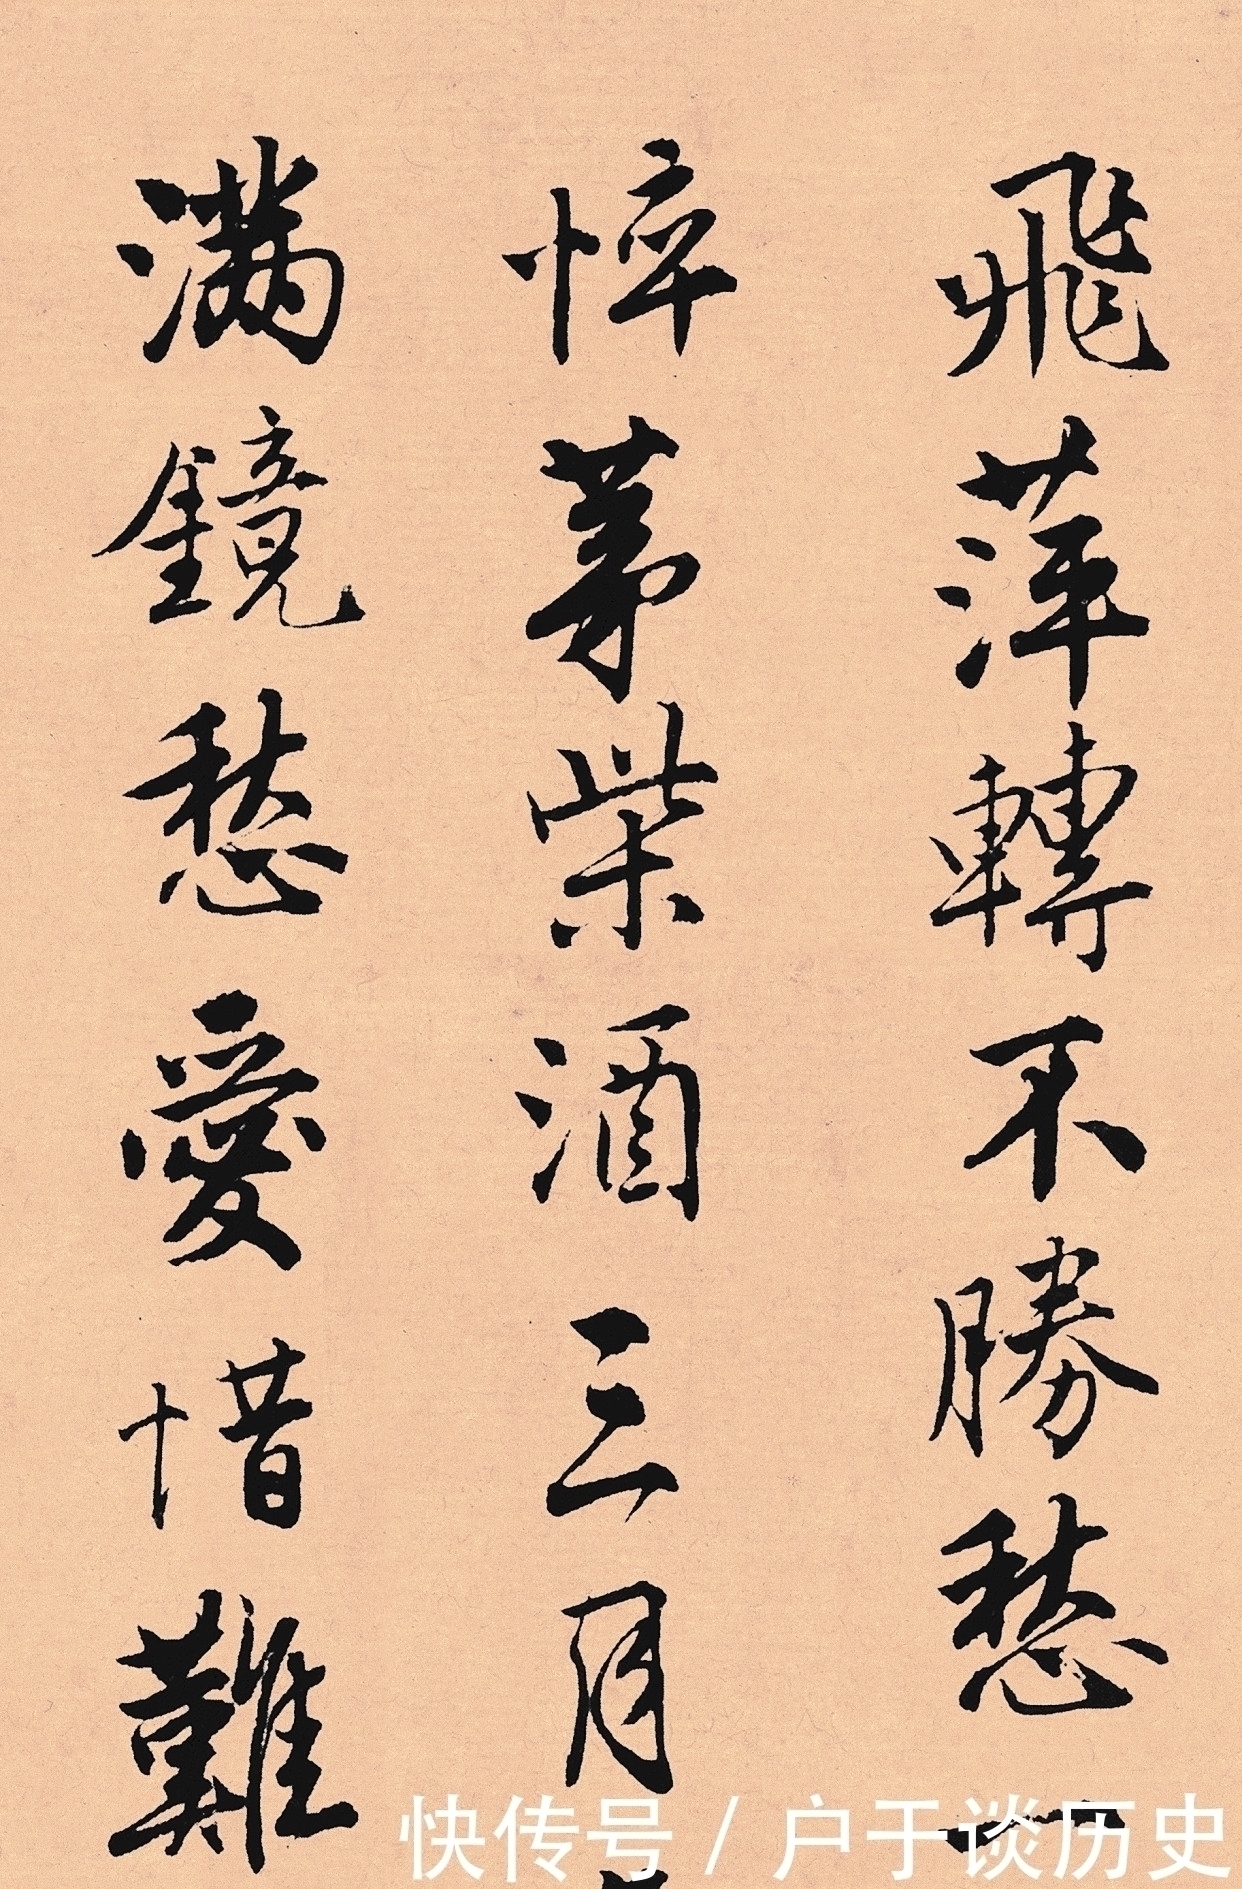 飛萍轉不勝愁一
悴茅柴酒三月
滿鏡愁愛惜難
快传号/户于谈历史